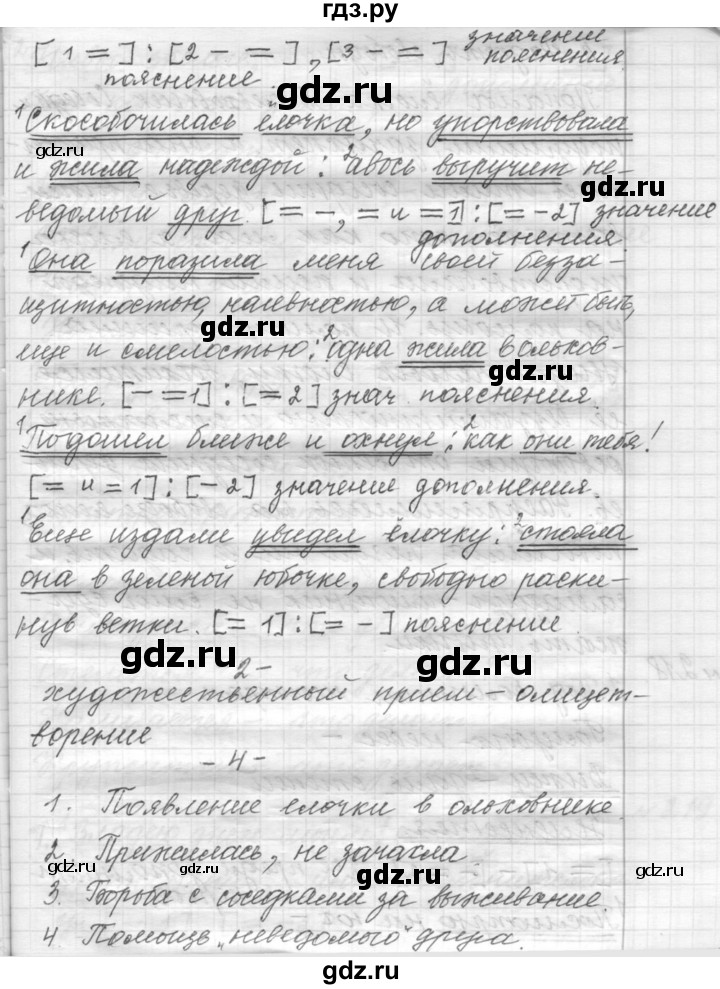 гдз.ру
[1 =] : [2 – =], [3 – =] значение пояснения
пояснение
gdz.ru
¹Скособочилась ёлочка, но упорствовала
gdz.ru gdz.ru
и жила надеждой: ²авось выручит не-
gdz.ru
ведомый друг. [= –, = и = 1] : [= – 2] значение
дополнения.
¹Она поразила меня своей безза-
щитностью, наивностью, а может быть,
gdz.ru
еще и смелостью: ²одна жила в ольхов-
gdz.ru gdz.ru
нике. [– = 1] : [= 2] знач. пояснения.
¹Подошел ближе и охнул: ²как они тебя!
gdz.ru
[= и = 1] : [– 2] значение дополнения.
¹Еще издали увидел ёлочку: ²стояла
gdz.ru
она в зеленой юбочке, свободно раски-
нув ветки. [= 1] : [= –] пояснение
gdz.ru gdz.ru
– 2 –
художественный прием – олицет-
ворение
gdz.ru
– 4 –
1. Появление елочки в ольховнике
2. Прижилась, не зачахла
gdz.ru gdz.ru
3. Борьба с соседками за выживание.
4. Помощь „неведомого" друга.
gdz.ru